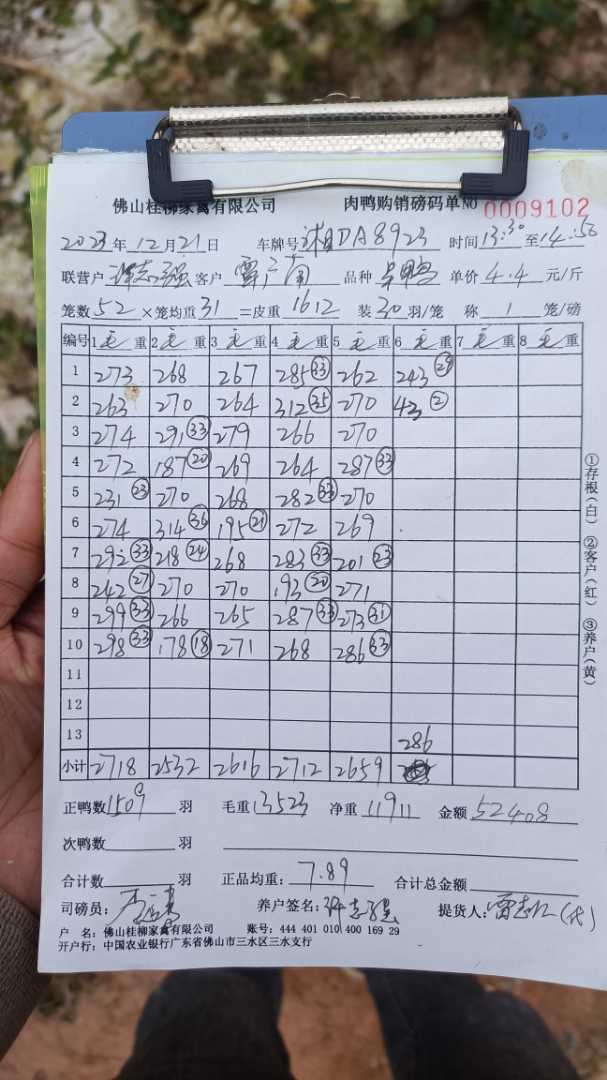 佛山桂柳家禽有限公司 肉鸭购销磅码单 NO 0009102
2023年12月21日 车牌号 湘DA8923 时间 13:30 至 14:50
联营户 客户 品种 单价 4.4 元/斤
笼数 52 ×笼均重 31 =皮重 1612 装 30 羽/笼 称 1 笼/磅
编号 1毛重 2毛重 3毛重 4毛重 5毛重 6毛重 7毛重 8毛重
1 273 268 267 285㉝ 262 243㉙
2 263 270 264 312㉟ 270 43②
3 274 291㉝ 279 266 270
4 272 187⑳ 269 264 287㉝
5 231㉓ 270 268 282㉝ 270
6 274 314㊱ 195㉑ 272 269
7 292㉝ 218㉔ 268 283㉝ 201㉓
8 242㉗ 270 270 193⑳ 271
9 299㉝ 266 265 287㉝ 273㉛
10 298㉝ 178⑱ 271 268 286㉝
11
12
13 286
小计 2718 2532 2616 2712 2659
①存根(白) ②客户(红) ③养户(黄)
正鸭数 1509 羽 毛重 13523 净重 11911 金额 52408
次鸭数 羽
合计数 羽 正品均重: 7.89 合计总金额
司磅员: 养户签名: 提货人: (代)
户 名: 佛山桂柳家禽有限公司 账号: 444 401 010 400 169 29
开户行: 中国农业银行广东省佛山市三水区三水支行